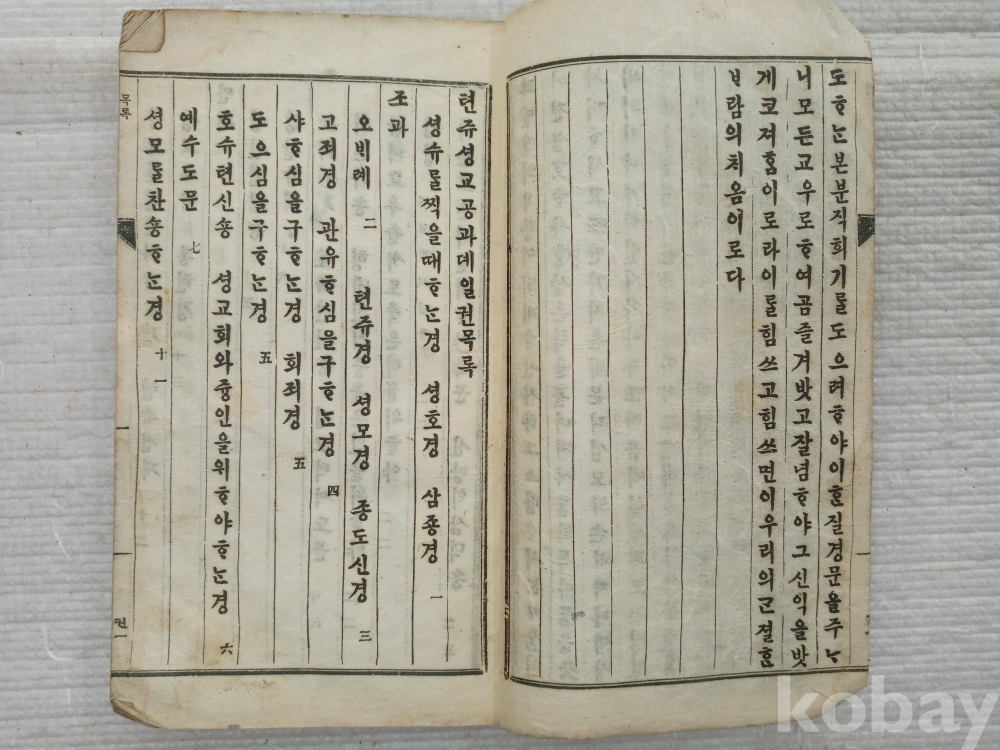 도ᄒᆞᄂᆞᆫ본분직희기ᄅᆞᆯ도으려ᄒᆞ야이ᄒᆞᆫ질경문을주ᄂᆞ
니모든교우로ᄒᆞ여곰즐겨밧고잘념ᄒᆞ야그신익을밧
게코져홈이로라이ᄅᆞᆯ힘쓰고힘쓰면이우리의근졀ᄒᆞᆫ
ᄇᆞ람의처음이로다
텬쥬셩교공과뎨일권목록
셩슈ᄅᆞᆯ찍을때ᄒᆞᄂᆞᆫ경 셩호경 삼죵경 一
조과
오ᄇᆡ례 二 텬쥬경 셩모경 종도신경 三
고죄경 관유ᄒᆞ심을구ᄒᆞᄂᆞᆫ경 四
샤ᄒᆞ심을구ᄒᆞᄂᆞᆫ경 회죄경 五
도으심을구ᄒᆞᄂᆞᆫ경 五
호슈텬신숑 셩교회와즁인을위ᄒᆞ야ᄒᆞᄂᆞᆫ경 六
예수도문 七
셩모ᄅᆞᆯ찬숑ᄒᆞᄂᆞᆫ경 十一
목록
一
권一
kobay